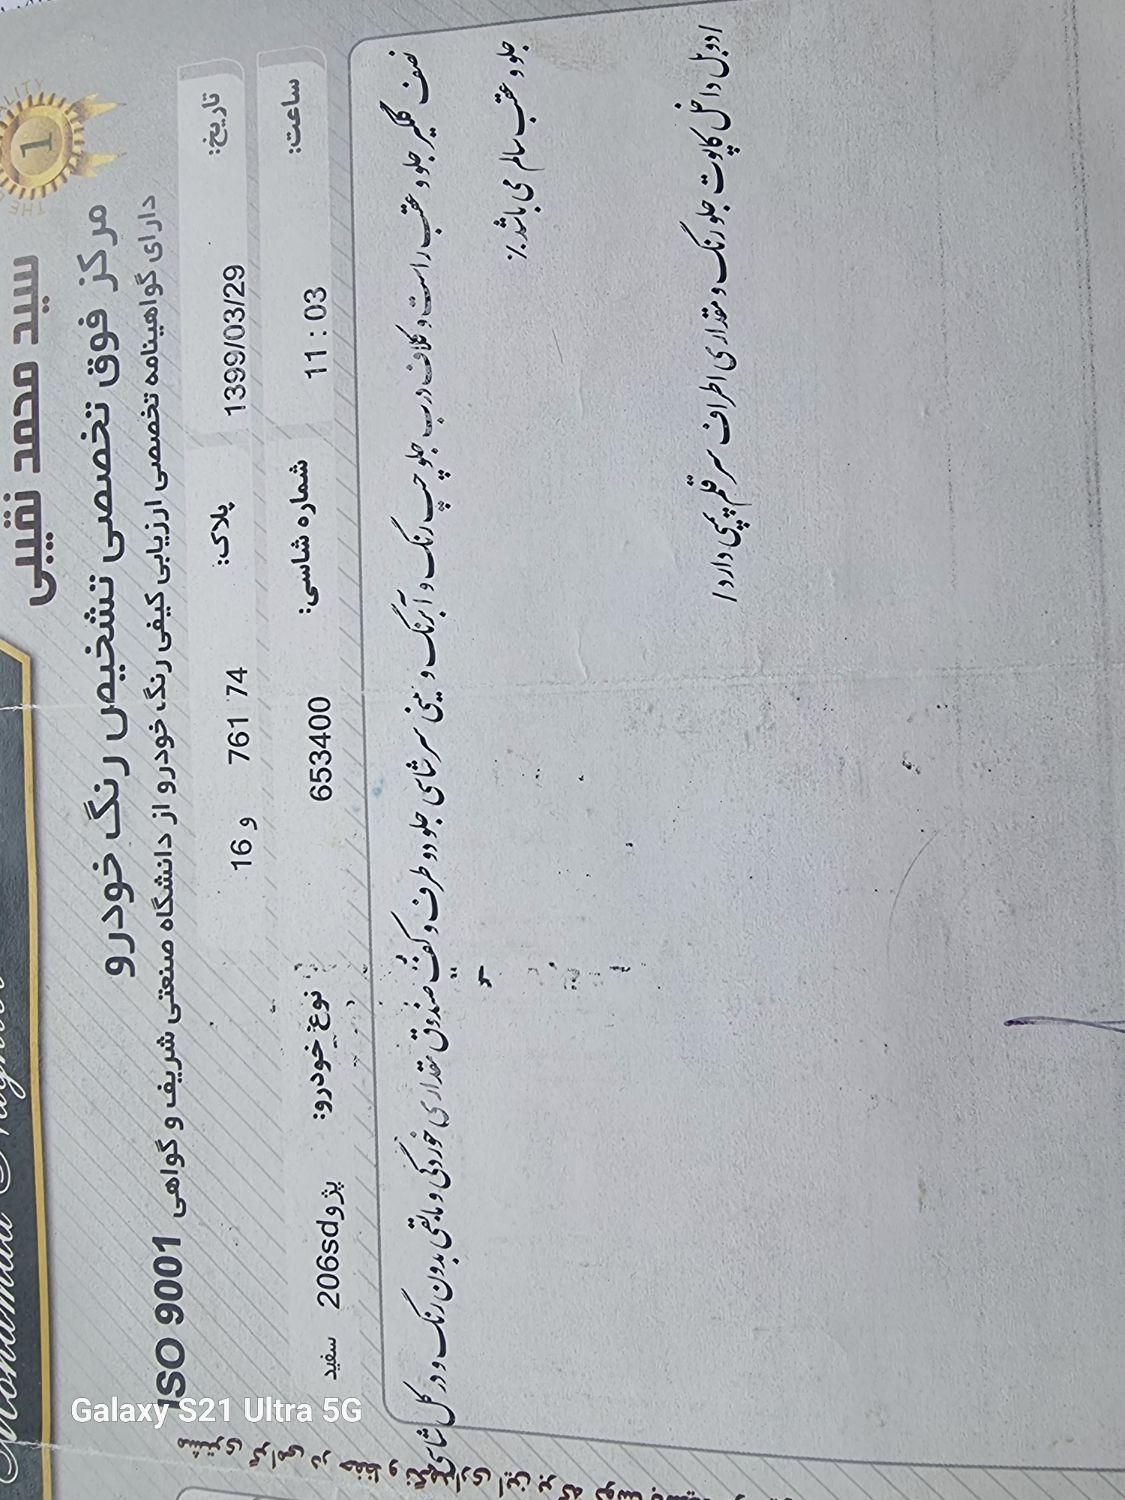 سید محمد نقیبی
مرکز فوق تخصصی تشخیص رنگ خودرو
دارای گواهینامه تخصصی ارزیابی کیفی رنگ خودرو از دانشگاه صنعتی شریف و گواهی ISO 9001
1
تاریخ: 1399/03/29 پلاک: 74 761 و 16
ساعت: 11 : 03 شماره شاسی: 653400 نوع خودرو: پژو206sd سفید
نصف گلگیر جلو و عقب راست و کلاف درب جلو چپ رنگ و آبرنگ و سینی سر شاسی جلو دو طرف و کفی صندوق مقداری خوردگی و مابقی بدون رنگ و در کل شاسی های
جلو و عقب سالم می باشد.٪
/دوبل داخل کاپوت جلو رنگ و مقداری اطراف سر قلم پمپی دارد/
Galaxy S21 Ultra 5G